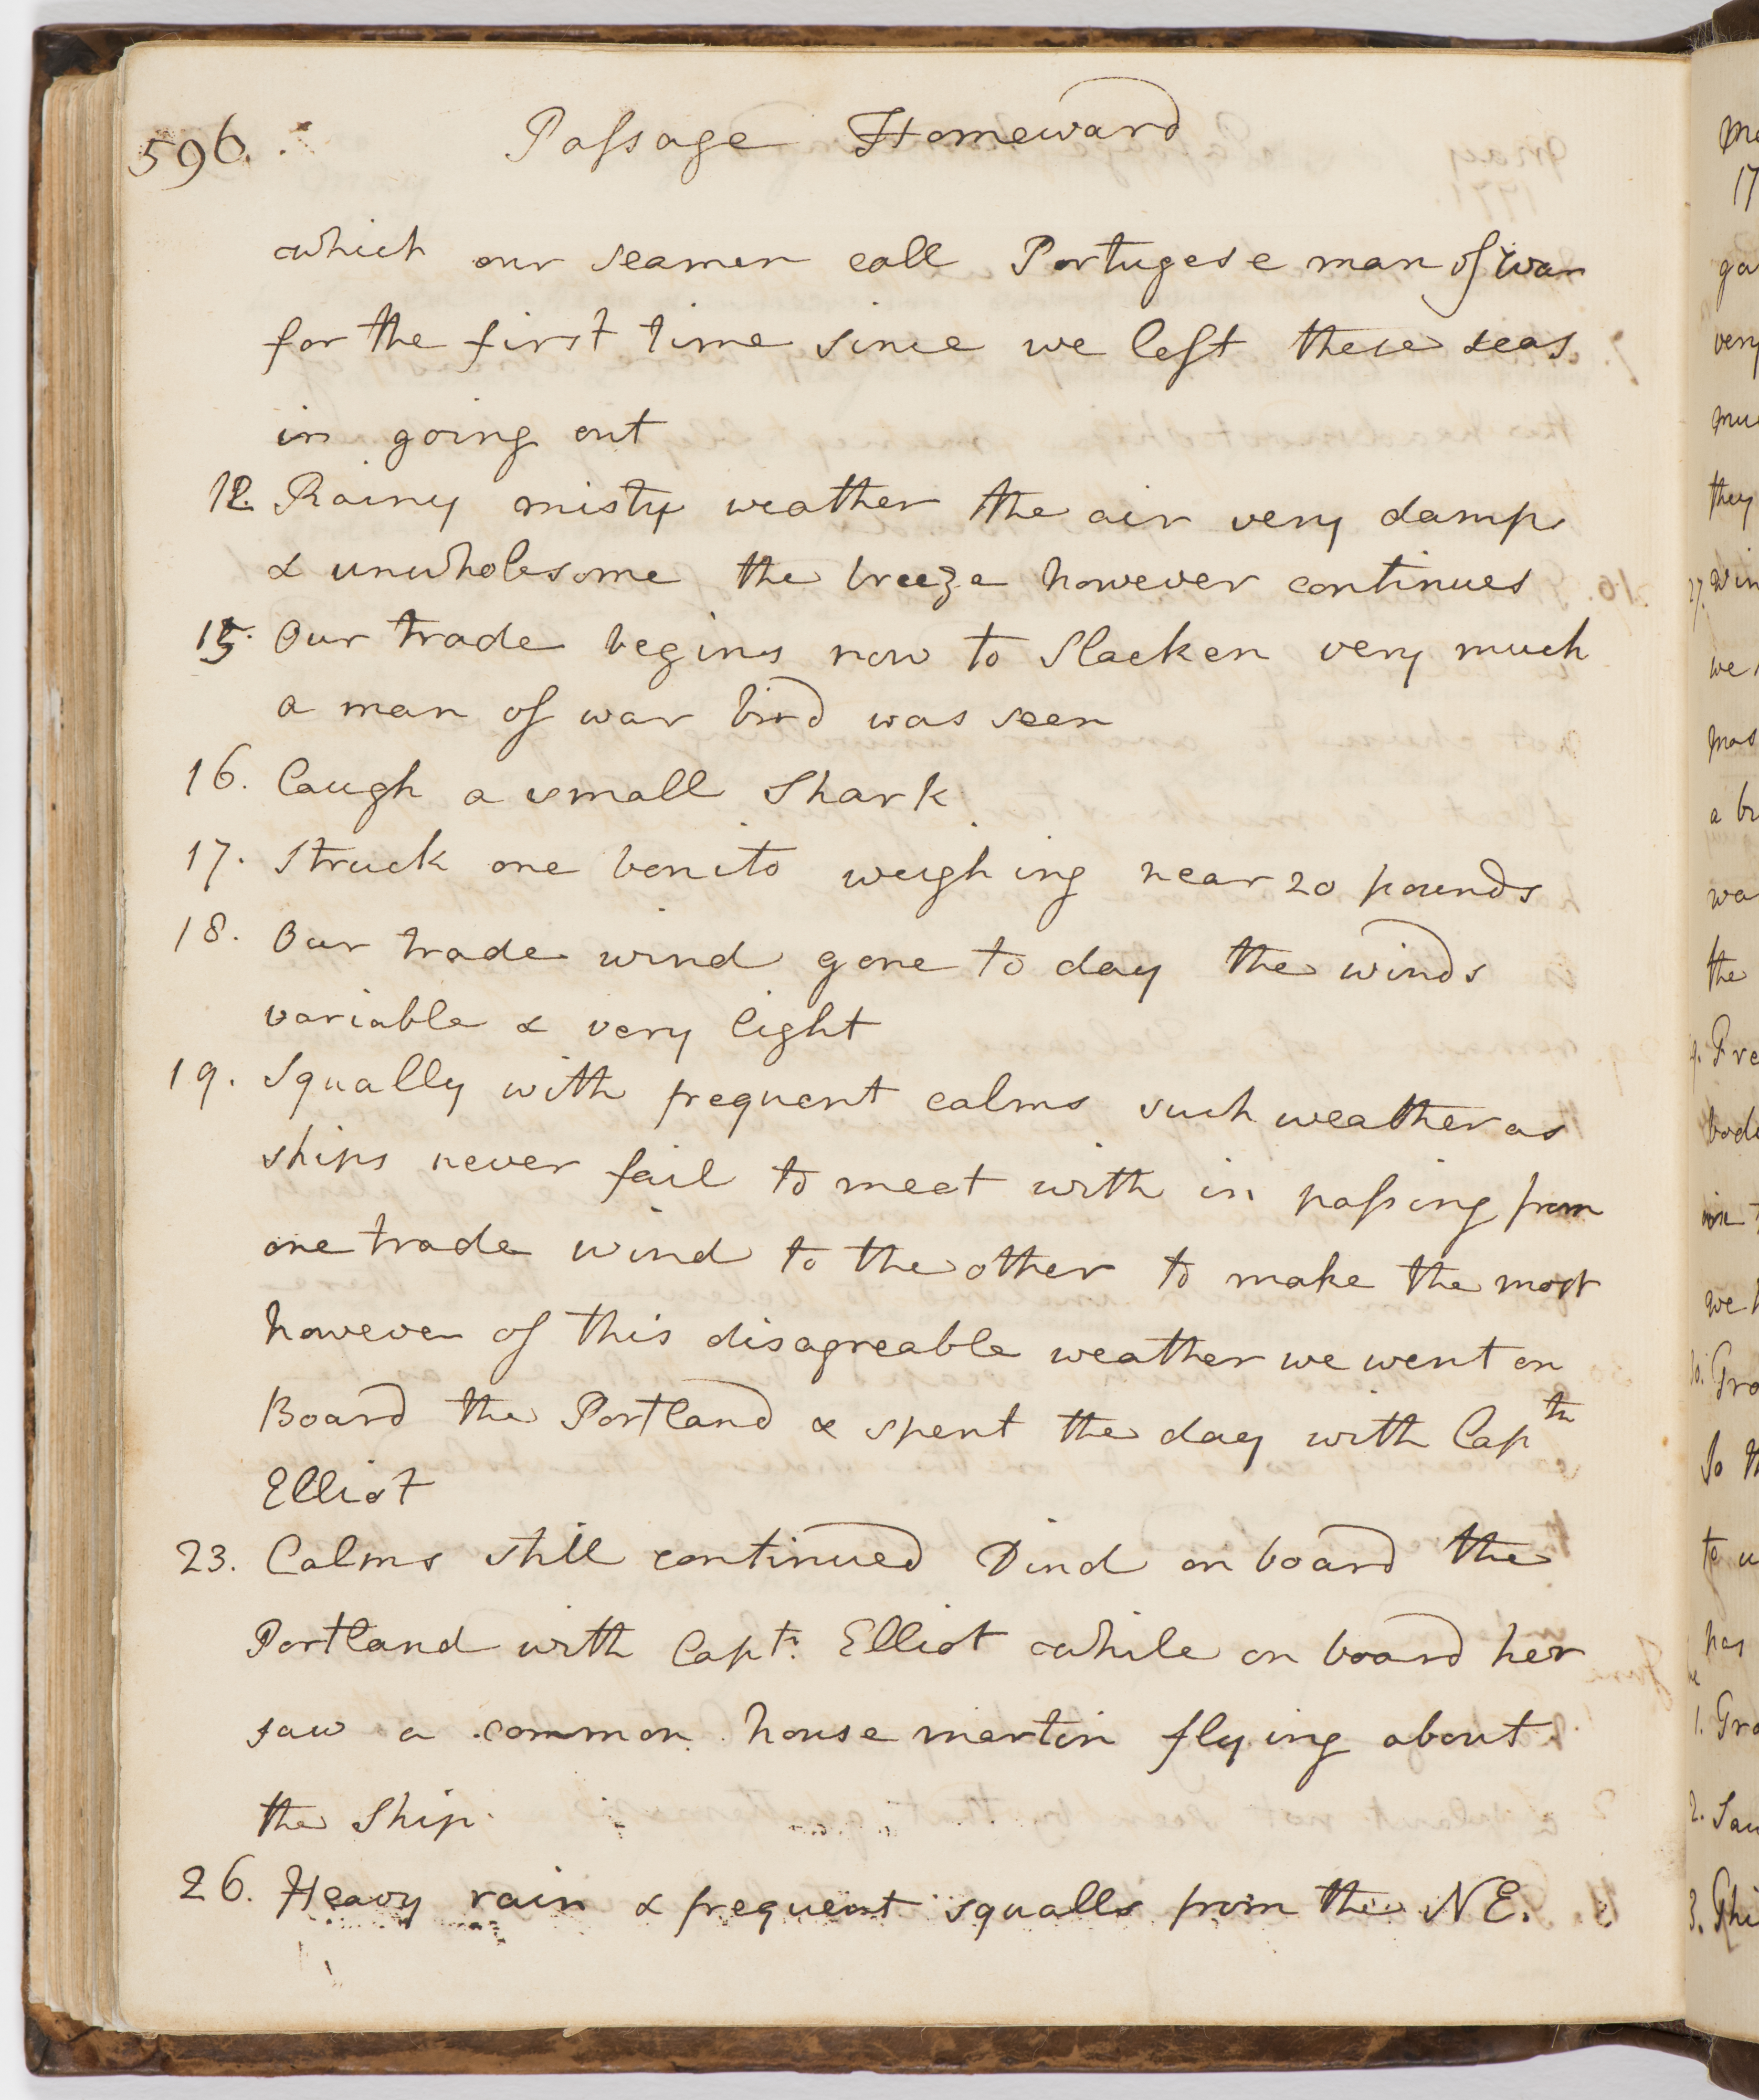 596.
Passage Homeward
which our seamen call Portugese man of war
for the first time since we left these seas
in going out
12. Rainy misty weather the air very damp
& unwholesome the breeze however continues
15. Our trade begins now to slacken very much
a man of war bird was seen
16. Caugh a small Shark
17. Struck one bonito weighing near 20 pounds
18. Our trade wind gone to day the winds
variable & very light
19. Squally with frequent calms such weather as
ships never fail to meet with in passing from
one trade wind to the other to make the most
however of this disagreable weather we went on
Board the Portland & spent the day with Captn
Elliot
23. Calms still continued Dind on board the
Portland with Captn. Elliot while on board her
saw a common house martin flying about
the Ship.
26. Heavy rain & frequent squalls from the NE.